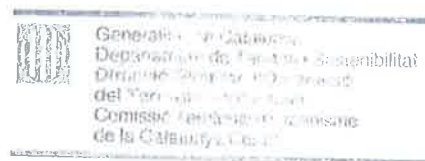 Generalitat de Catalunya
Departament de Territori i Sostenibilitat
Direcció General d'Ordenació
del Territori i Urbanisme
Comissió Territorial d'Urbanisme
de la Catalunya Central